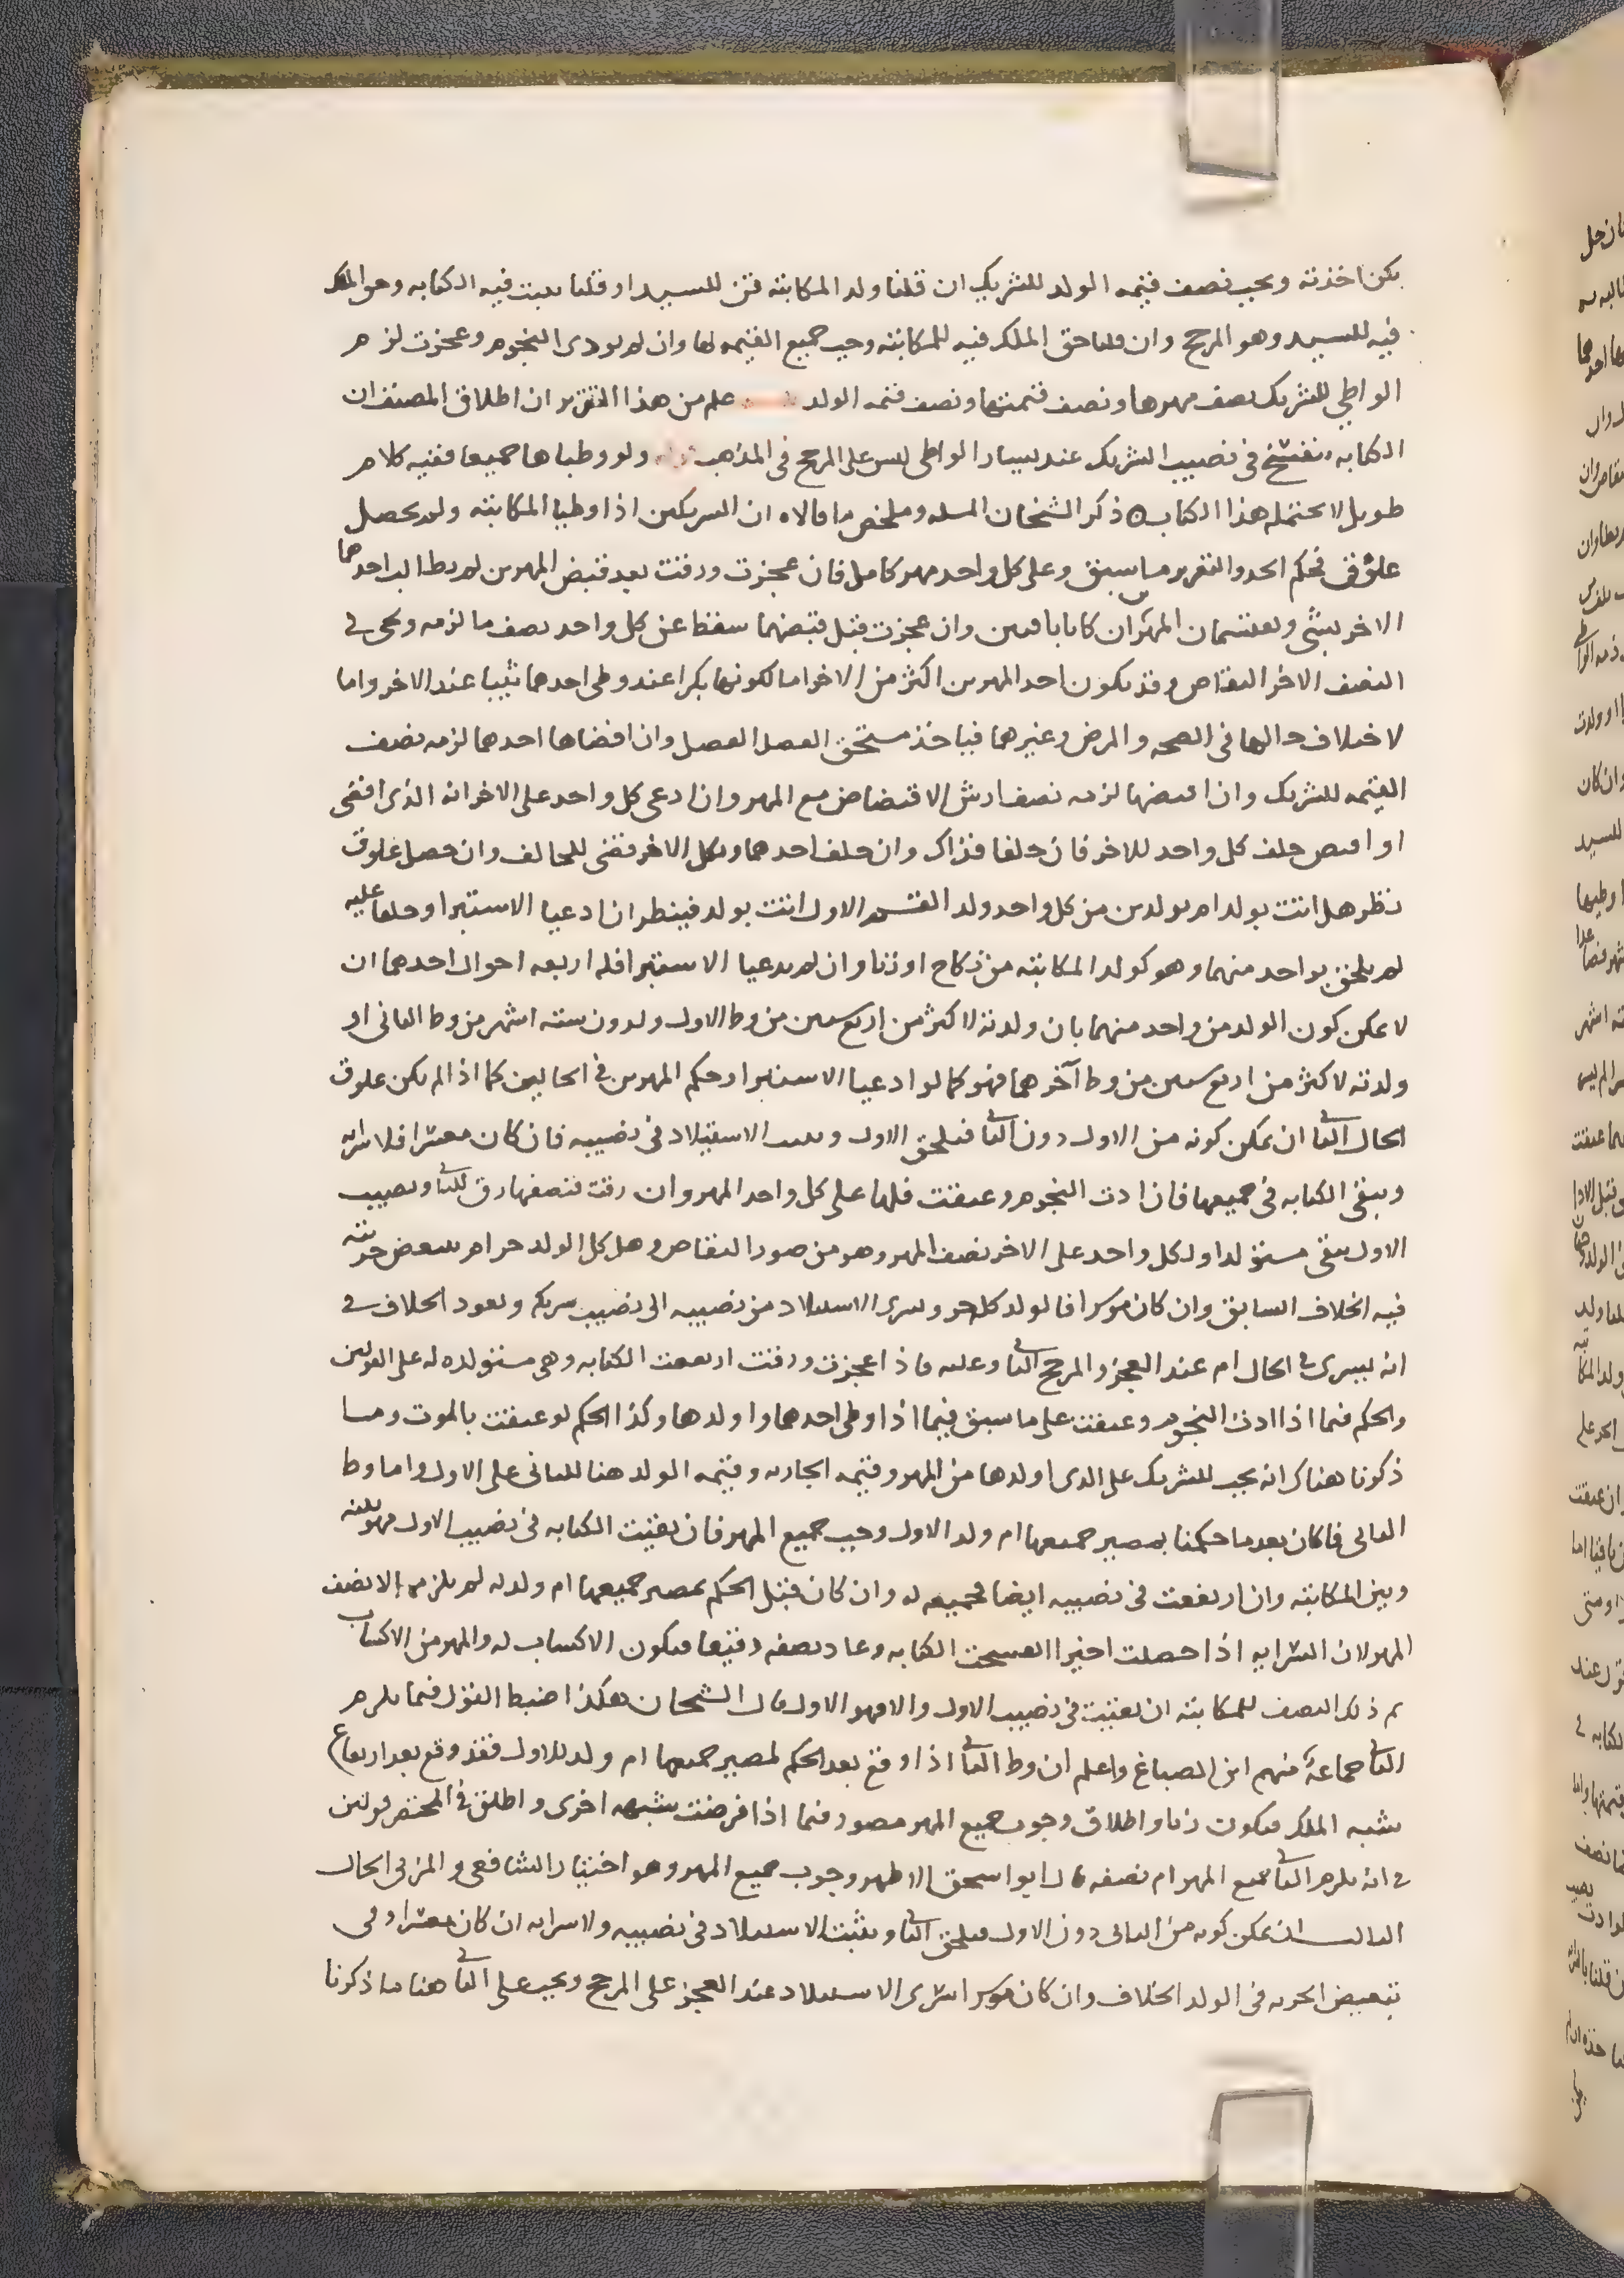 يكن اخذته ويجب نصف قيمه الولد للشريك ان قلنا ولد المكاتبة قن للسيد او قلنا يثبت فيه الكتابه وحق الملك
فيه للسيد وهو المرجح وان قلنا حق الملك فيه للمكاتبة وجب جميع القيمه لها وان لم يودى النجوم وعجزت لزم
الواطي للشريك نصف مهرها ونصف قيمتها ونصف قيمه الولد علم من هذا التقرير ان اطلاق المصنف ان
الكتابه تنفسخ في نصيب الشريك عند يسار الواطي ليس على المرجح في المذهب ولو وطياها جميعا ففيه كلام
طويل لا يحتمله هذا الكتاب ذكر الشيخان المسله وملخص ما قالاه ان الشريكين اذا وطيا المكاتبة ولم يحصل
علوق فحكم الحد والتقرير ما سبق وعلى كل واحد مهر كامل فان عجزت ورقت بعد قبض المهرين لم يطالب احدهما
الاخر بشى ويقتسمان المهرين ان كانا باقيين وان عجزت قبل قبضهما سقط عن كل واحد نصف ما لزمه ويجى في
النصف الاخر التقاص وقد يكون احد المهرين اكثر من الاخر اما لكونها بكرا عند وطى احدهما ثيبا عند الاخر واما
لاختلاف حالها في الصحه والمرض وغيرهما فياخذ مستحق الفضل الفضل وان افضاها احدهما لزمه نصف
القيمه للشريك وان اقتضها لزمه نصف ارش الاقتضاض مع المهر وان ادعى كل واحد على الاخر انه الذى افضى
او اقتض حلف كل واحد للاخر فان حلفا فذاك وان حلف احدهما ونكل الاخر قضى للحالف وان حصل علوق
نظر هل اتت بولد ام بولدين من كل واحد ولد القسم الاول اتت بولد فينظر ان ادعيا الاستبرا وحلفا عليه
لم يلحق بواحد منهما وهو كولد المكاتبة من نكاح او زنا وان لم يدعيا الاستبرا فله اربعه احوال احدهما ان
لا يمكن كون الولد من واحد منهما بان ولدته لاكثر من اربع سنين من وط الاول ولدون سته اشهر من وط الثانى او
ولدته لاكثر من اربع سنين من وط آخرهما فهو كما لو ادعيا الاستبرا وحكم المهرين في الحالين كما اذا لم يكن علوق
الحال الثاني ان يمكن كونه من الاول دون الثاني فيلحق الاول ويثبت الاستيلاد في نصيبه فان كان معسرا فلا سرايه
ويبقى الكتابه في جميعها فان ادت النجوم وعتقت فلها على كل واحد المهر وان رقت فنصفها رق للثاني ونصيب
الاول يبقى مستولدا ولكل واحد على الاخر نصف المهر وهو من صور التقاص وهل كل الولد حر ام يتبعض حريته
فيه الخلاف السابق وان كان موسرا فالولد كله حر ويسرى الاستيلاد من نصيبه الى نصيب شريكه ويعود الخلاف في
انه يسرى في الحال ام عند العجز والمرجح الثاني وعليه فاذا عجزت ورقت ارتفعت الكتابه وهى مستولده له على القولين
والحكم فيما اذا ادت النجوم وعتقت على ما سبق فيما اذا وطى احدهما واولدها وكذا الحكم لو عتقت بالموت وما
ذكرنا هناك انه يجب للشريك على الذى اولدها من المهر وقيمه الجاريه وقيمه الولد هنا للثانى على الاول واما وط
الثانى فان كان بعد ما حكمنا بمصير جميعها ام ولد الاول وجب جميع المهر فان بقيت الكتابه في نصيب الاول فهو بينه
وبين المكاتبة وان ارتفعت في نصيبه ايضا فجميعه له وان كان قبل الحكم بمصير جميعها ام ولد له لم يلزمه الا نصف
المهر لان السرايه اذا حصلت اخيرا انفسخت الكتابه وعاد نصفه رقيقا فيكون الاكساب له والمهر من الاكساب
ثم ذلك النصف للمكاتبة ان بقيت في نصيب الاول والا فهو الاول قال الشيخان هكذا ضبط القول فيما يلزم
الثاني جماعة منهم ابن الصباغ واعلم ان وط الثاني اذا وقع بعد الحكم لمصير جميعها ام ولد للاول فقد وقع بعد ارتفاع
شبه الملك فيكون زنا واطلاق وجوب جميع المهر مصور فيما اذا فرضت شبهه اخرى واطلق في المختصر قولين
في انه يلزم الثاني جميع المهر ام نصفه قال ابواسحق الاظهر وجوب جميع المهر وهو اختيار الشافعى والمزنى الحال
الثالث ان يمكن كونه من الثانى دون الاول فيلحق الثاني ويثبت الاستيلاد في نصيبه ولا سرايه ان كان معسرا وفى
تبعيض الحريه في الولد الخلاف وان كان موسرا سرى الاستيلاد عند العجز على المرجح ويجب على الثاني هنا ما ذكرنا